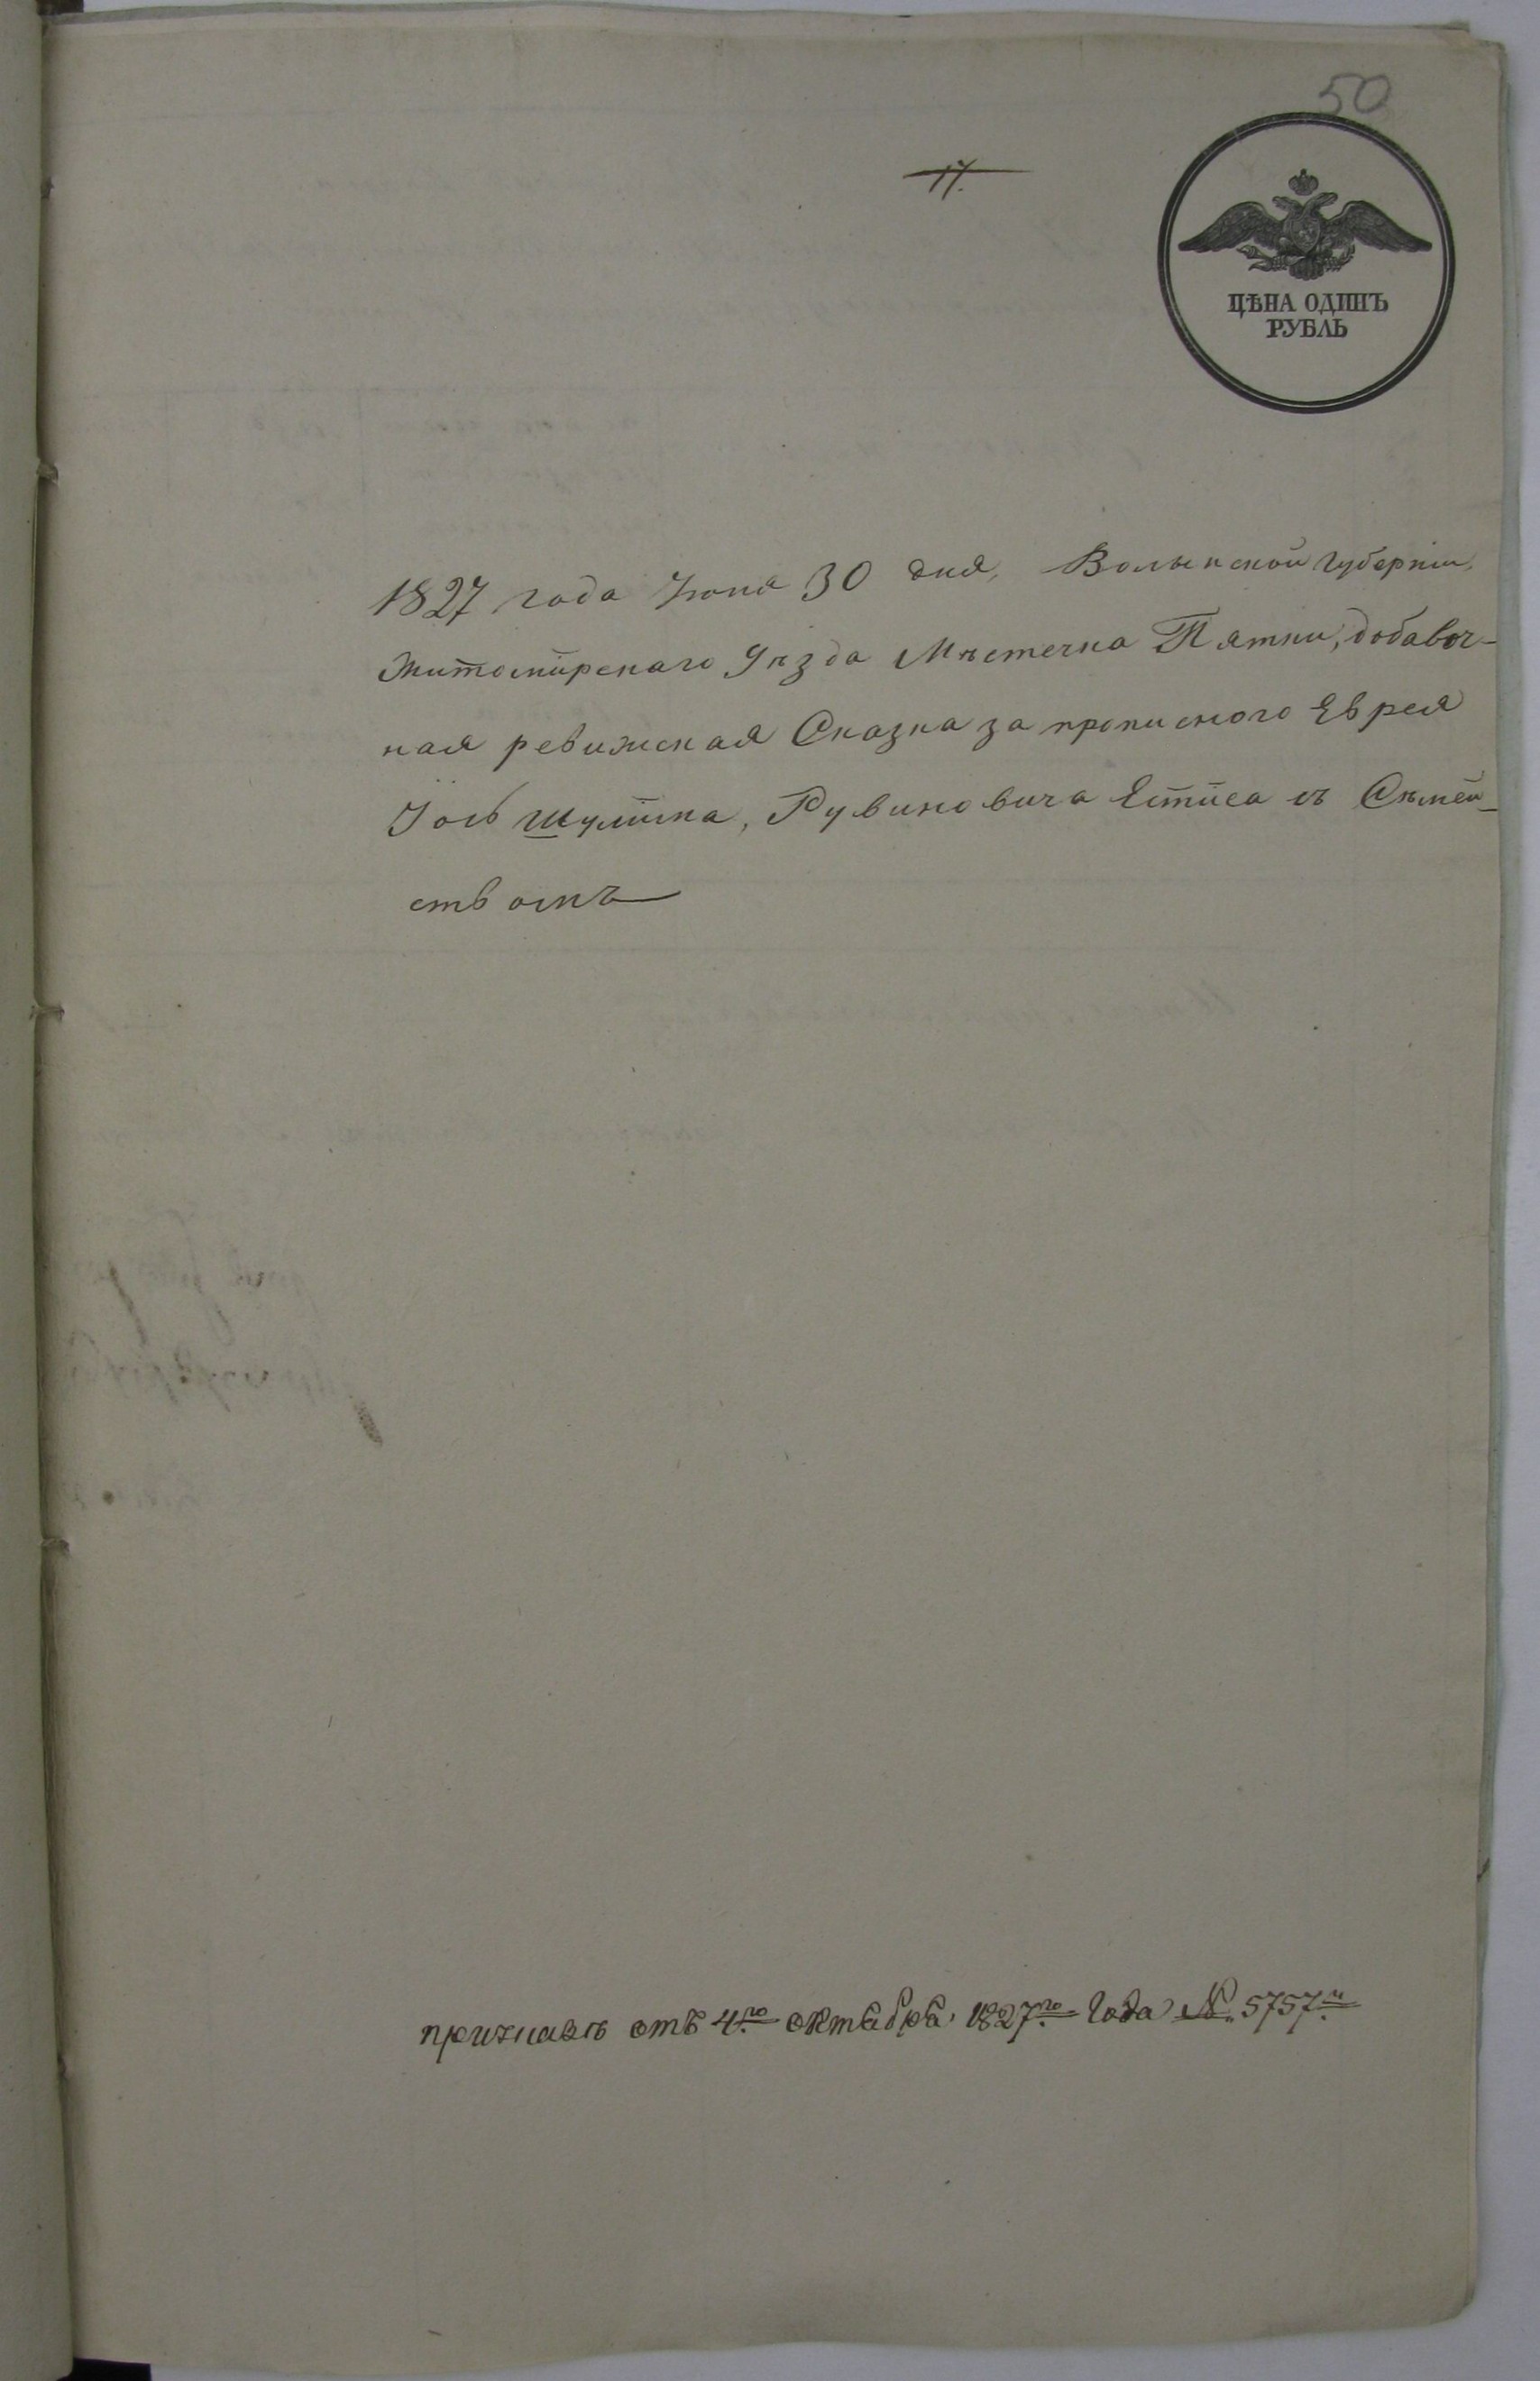 50
17.
ЦѢНА ОДИНЪ
РУБЛЬ
1827 года Іюня 30 дня, Волынской Губерніи,
Житомирскаго Уѣзда Мѣстечка Пятки, добавоч-
ная ревижская Сказка за прописного Еврея
Іось Шулима, Рувиновича Естиса съ Сѣмей-
ствомъ
отъ 4.го октября 1827.го Года № 5757.м